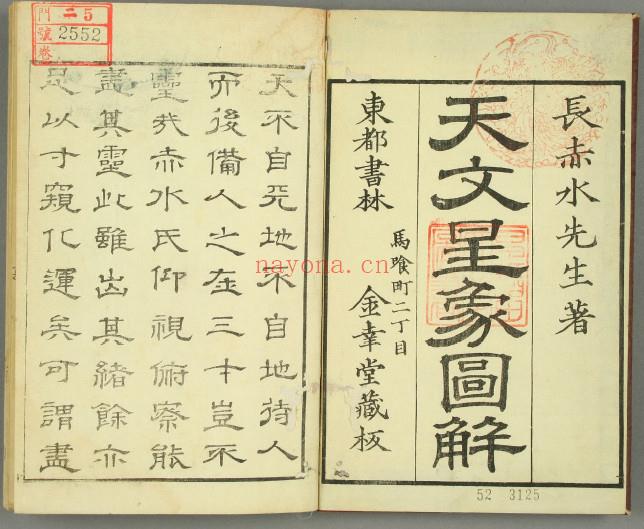 長赤水先生著
天文星象圖解
東都書林
馬喰町二丁目
金幸堂藏板
天不自天地不自地待人
而後備人之在三才豈不
靈哉赤水氏仰視俯察能
盡其靈此雖出其緒餘亦
足以寸窺化運矣可謂盡
門 二 5
號 2552
卷
52 3125
nayona.cn